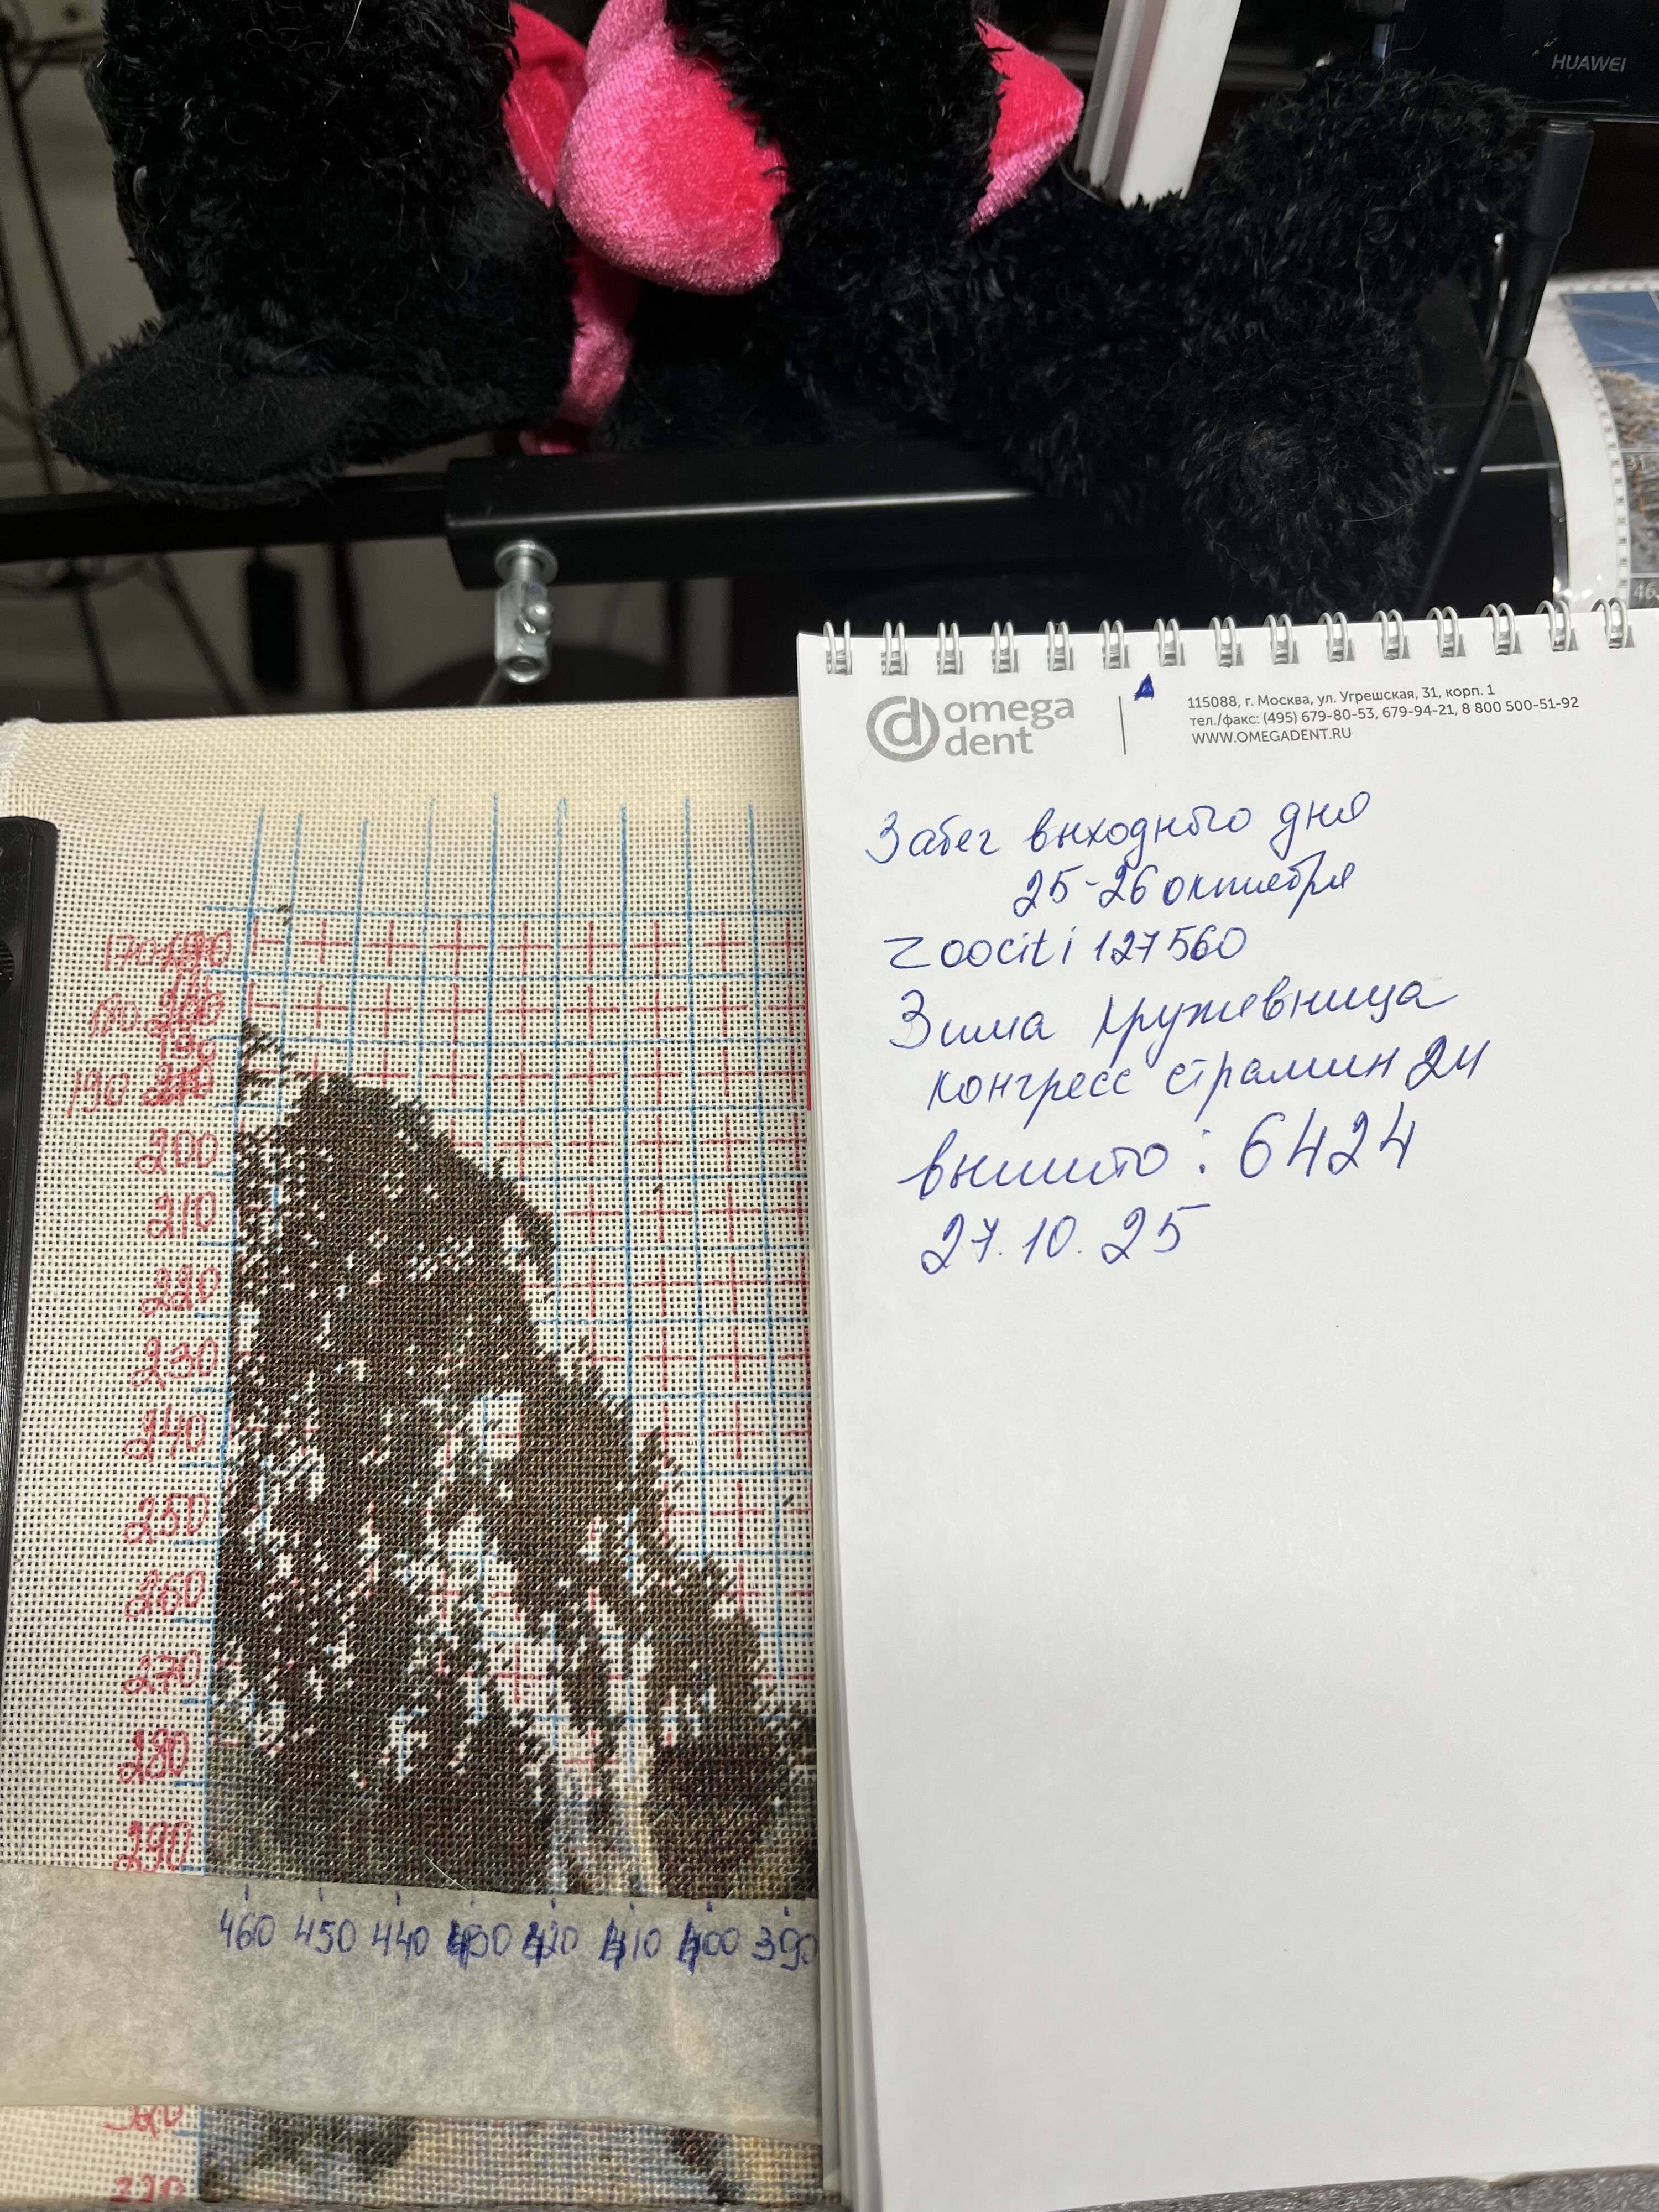 HUAWEI
31
46
omega
dent
115088, г. Москва, ул. Угрешская, 31, корп. 1
тел./факс: (495) 679-80-53, 679-94-21, 8 800 500-51-92
WWW.OMEGADENT.RU
Забег выходного дня
25-26 октября
Zoociti 127560
Зима кружевница
конгресс страмин 24
вышито: 6424
27.10.25
190
200
210
220
230
240
250
260
270
280
290
460 450 440 430 420 410 400 390